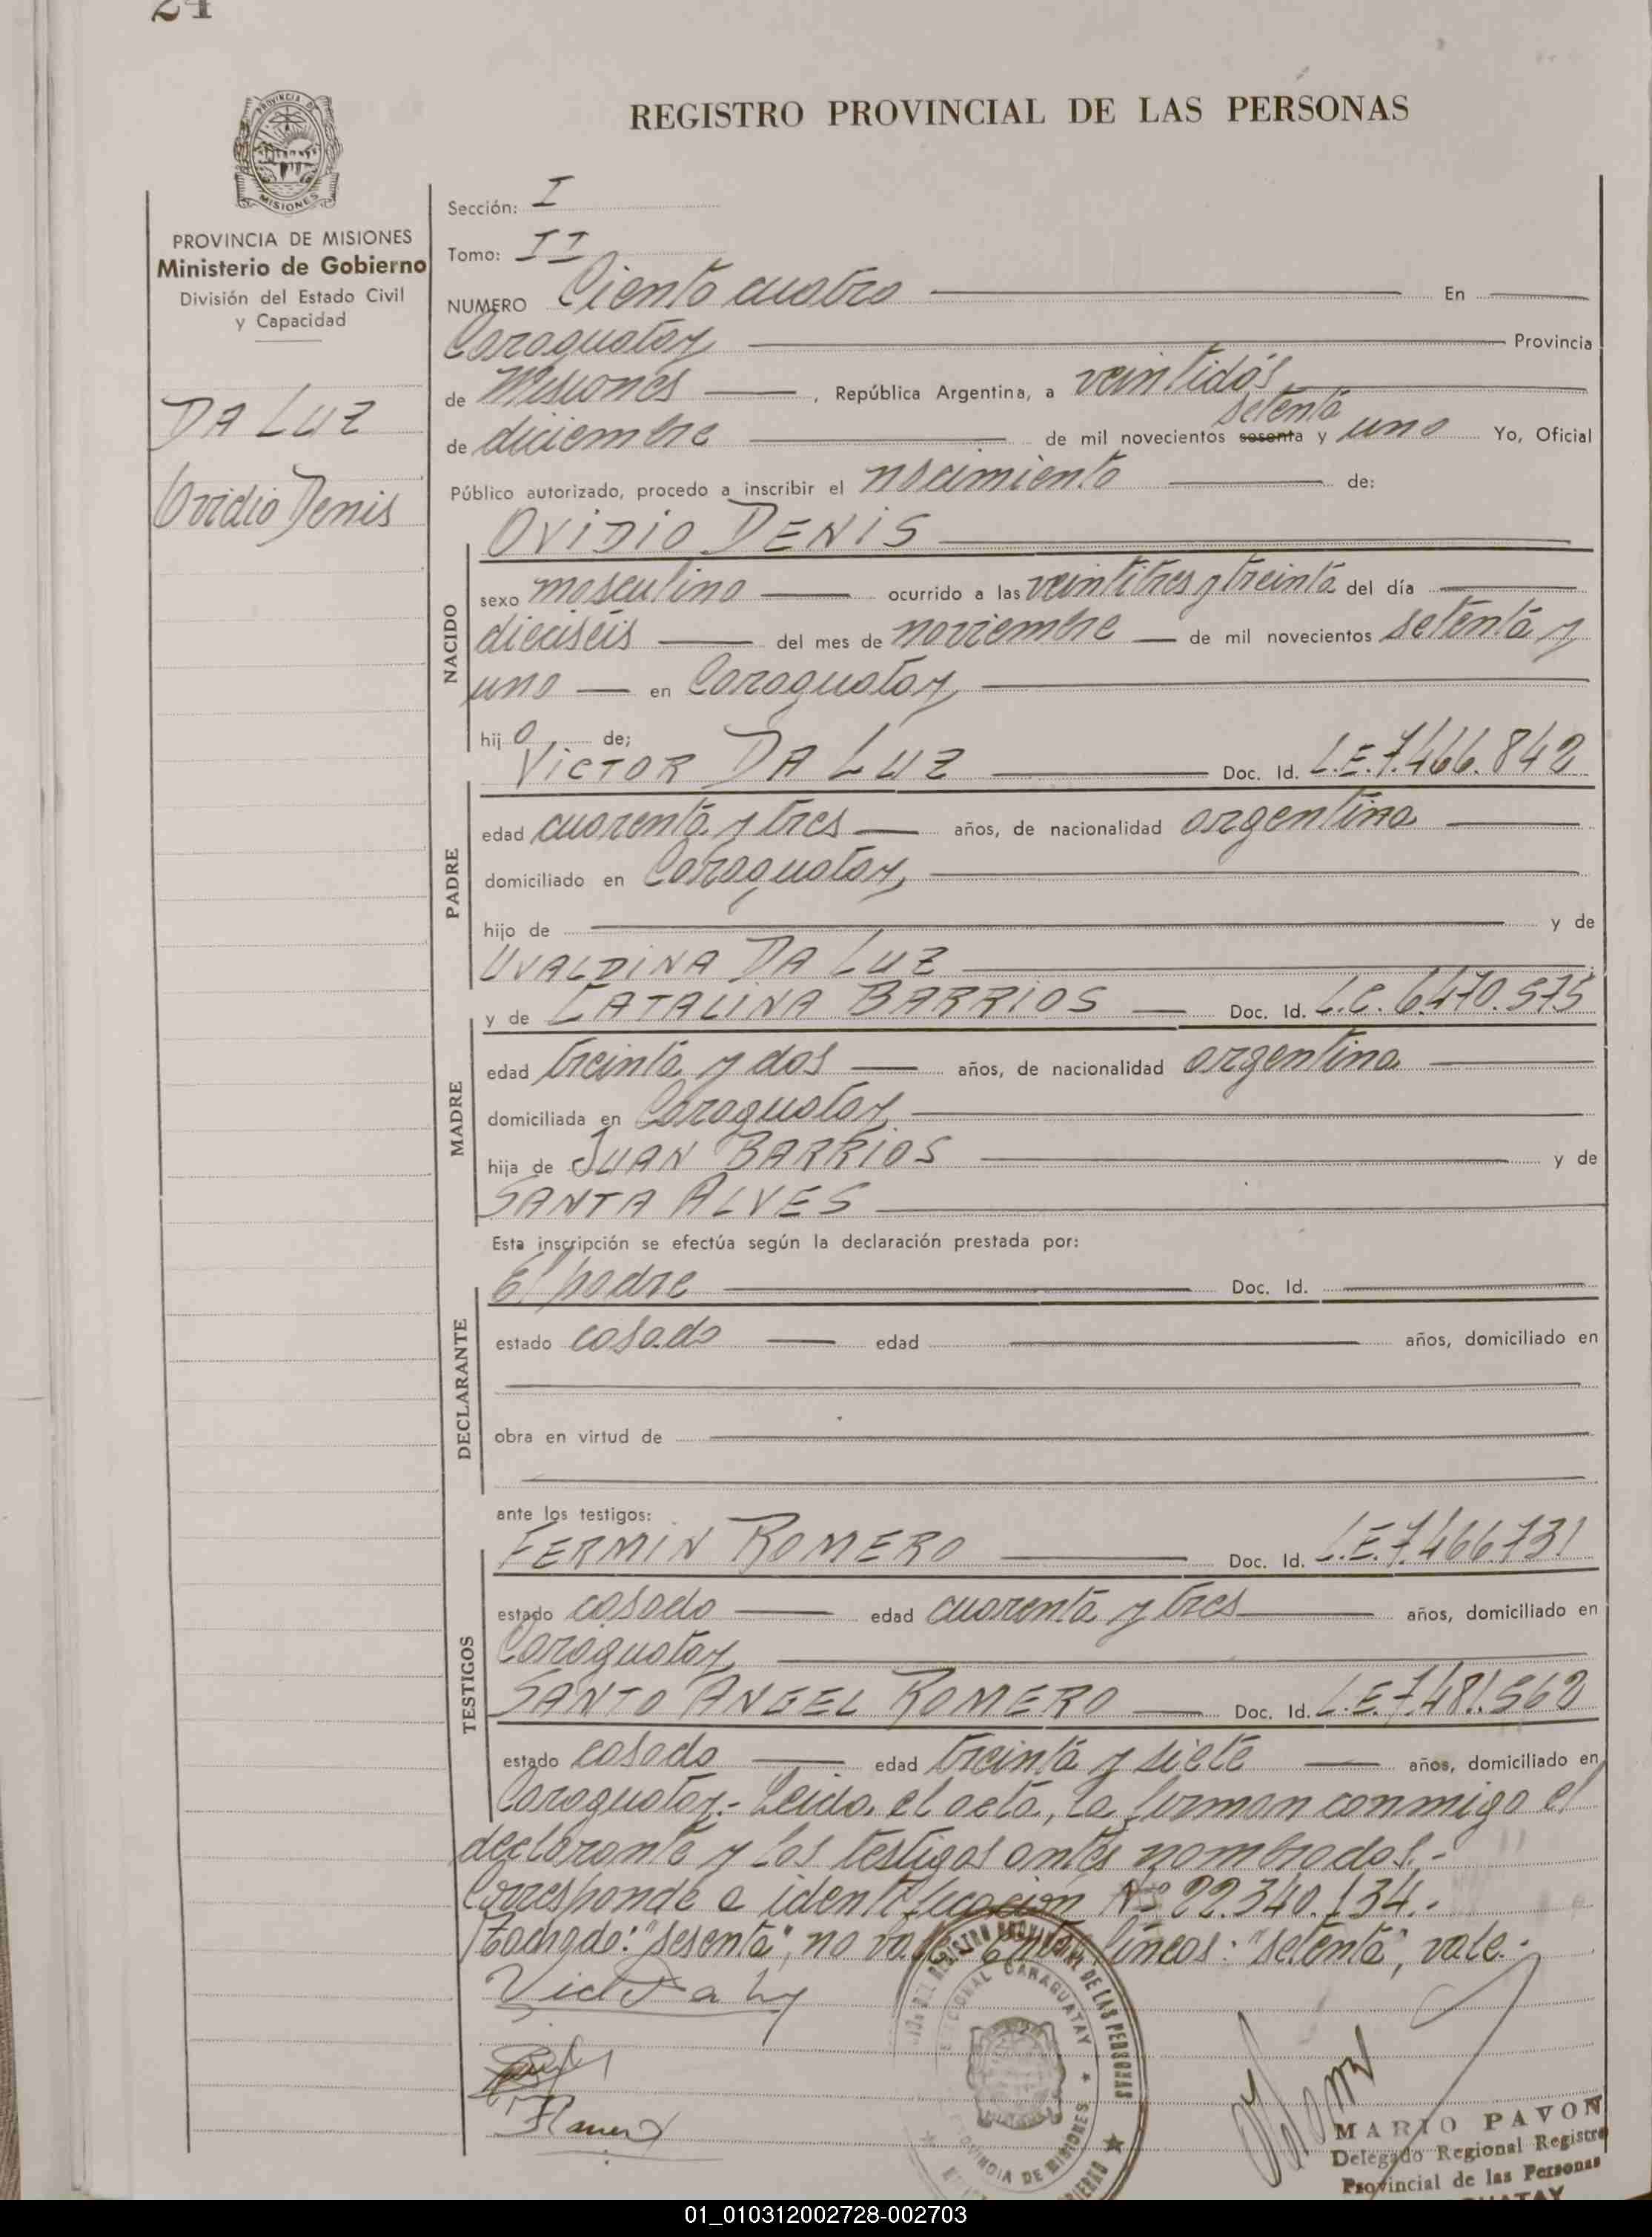 24
REGISTRO PROVINCIAL DE LAS PERSONAS
MISIONES
PROVINCIA DE MISIONES
Ministerio de Gobierno
División del Estado Civil
y Capacidad
DA LUZ
Ovidio Denis
Sección: I
Tomo: II
NUMERO Ciento cuatro En
Caraguatay Provincia
de Misiones, República Argentina, a veintidós
setenta
de diciembre de mil novecientos sesenta y uno Yo, Oficial
Público autorizado, procedo a inscribir el nacimiento de:
OVIDIO DENIS
NACIDO
sexo masculino ocurrido a las veintitres y treinta del día
dieciseis del mes de noviembre de mil novecientos setenta y
uno en Caraguatay
hijo de;
VICTOR DA LUZ Doc. Id. L.E. 7.466.842
PADRE
edad cuarenta y tres años, de nacionalidad argentina
domiciliado en Caraguatay
hijo de y de
UVALDINA DA LUZ
y de CATALINA BARRIOS Doc. Id. L.C. 6.470.575
MADRE
edad treinta y dos años, de nacionalidad argentina
domiciliada en Caraguatay
hija de JUAN BARRIOS y de
SANTA ALVES
Esta inscripción se efectúa según la declaración prestada por:
El padre Doc. Id.
DECLARANTE
estado casado edad años, domiciliado en
obra en virtud de
ante los testigos:
FERMIN ROMERO Doc. Id. L.E. 7.466.731
TESTIGOS
estado casado edad cuarenta y tres años, domiciliado en
Caraguatay
SANTO ANGEL ROMERO Doc. Id. L.E. 7.481.562
estado casado edad treinta y siete años, domiciliado en
Caraguatay.- Leida el acta, la firman conmigo el
declarante y los testigos antes nombrados.-
Corresponde a identificación Nº 22.340.134.-
Tachado: "sesenta", no vale. Entre lineas: "setenta", vale.-
MARIO PAVON
Delegado Regional Registro
Provincial de las Personas
01_010312002728-002703